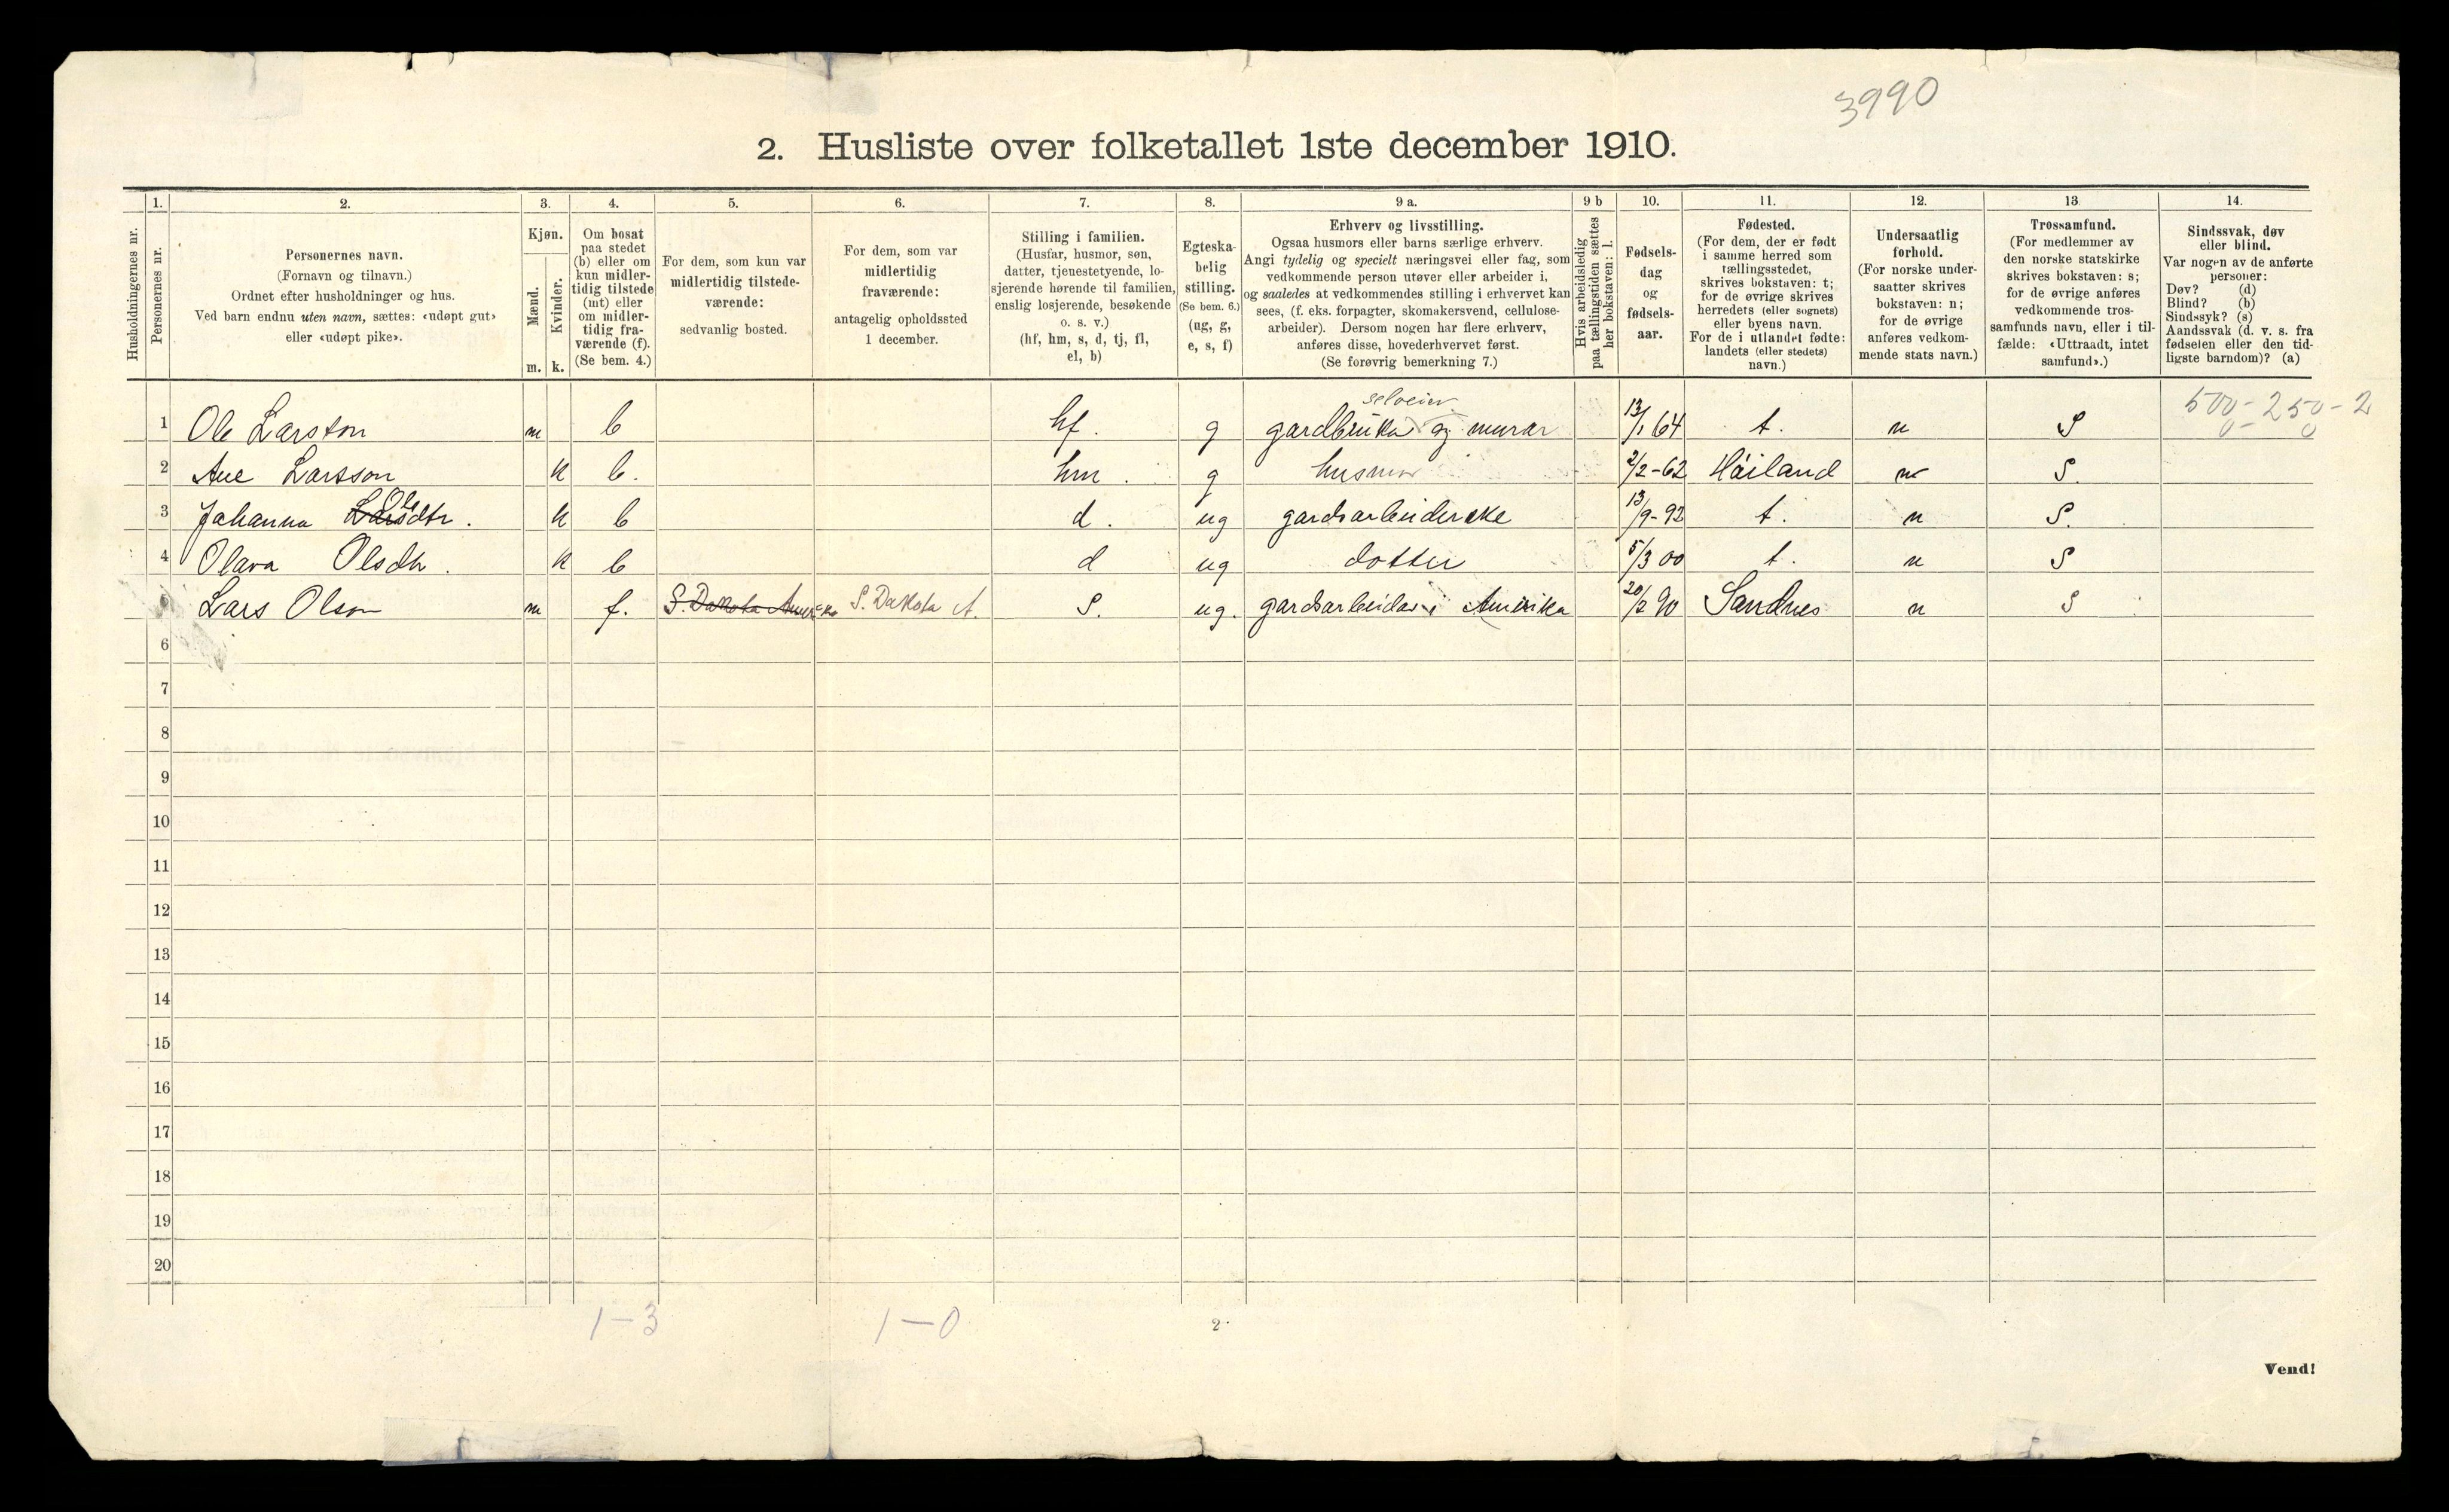 3990
2. Husliste over folketallet 1ste december 1910.
Husholdningernes nr.
1.
Personernes nr.
2.
Personernes navn.
(Fornavn og tilnavn.)
Ordnet efter husholdninger og hus.
Ved barn endnu uten navn, sættes: «udøpt gut»
eller «udøpt pike».
3.
Kjøn.
Mænd.
Kvinder.
m.
k.
4.
Om bosat
paa stedet
(b) eller om
kun midler-
tidig tilstede
(mt) eller
om midler-
tidig fra-
værende (f).
(Se bem. 4.)
5.
For dem, som kun var
midlertidig tilstede-
værende:
sedvanlig bosted.
6.
For dem, som var
midlertidig
fraværende:
antagelig opholdssted
1 december.
7.
Stilling i familien.
(Husfar, husmor, søn,
datter, tjenestetyende, lo-
sjerende hørende til familien,
enslig losjerende, besøkende
o. s. v.)
(hf, hm, s, d, tj, fl,
el, b)
8.
Egteska-
belig
stilling.
(Se bem. 6.)
(ug, g,
e, s, f)
9 a.
Erhverv og livsstilling.
Ogsaa husmors eller barns særlige erhverv.
Angi tydelig og specielt næringsvei eller fag, som
vedkommende person utøver eller arbeider i,
og saaledes at vedkommendes stilling i erhvervet kan
sees, (f. eks. forpagter, skomakersvend, cellulose-
arbeider). Dersom nogen har flere erhverv,
anføres disse, hovederhvervet først.
(Se forøvrig bemerkning 7.)
9 b
Hvis arbeidsledig
paa tællingstiden sættes
her bokstaven: l.
10.
Fødsels-
dag
og
fødsels-
aar.
11.
Fødested.
(For dem, der er født
i samme herred som
tællingsstedet,
skrives bokstaven: t;
for de øvrige skrives
herredets (eller sognets)
eller byens navn.
For de i utlandet fødte:
landets (eller stedets)
navn.)
12.
Undersaatlig
forhold.
(For norske under-
saatter skrives
bokstaven: n;
for de øvrige
anføres vedkom-
mende stats navn.)
13.
Trossamfund.
(For medlemmer av
den norske statskirke
skrives bokstaven: s;
for de øvrige anføres
vedkommende tros-
samfunds navn, eller i til-
fælde: «Uttraadt, intet
samfund».)
14.
Sindssvak, døv
eller blind.
Var nogen av de anførte
personer:
Døv? (d)
Blind? (b)
Sindssyk? (s)
Aandssvak (d. v. s. fra
fødselen eller den tid-
ligste barndom)? (a)
selveier
1 Ole Larsson m b hf. g gardbruker og murar 13/1 64 t. n S 500-250-2
2 Ane Larsson k b. hm. g husmor 2/2-62 Häiland n S.
Ols
3 Johanna Larsdtr. k b d. ug gardsarbeiderske 13/9-92 t. n S.
4 Olava Olsdtr. k b d ug dotter 5/3 00 t. n S
Lars Olson m f. S. Dakota Amerika S. Dakota A. S. ug. gardsarbeidar i Amerika 20/2 90 Sandnes n S
6
7
8
9
10
11
12
13
14
15
16
17
18
19
20
1-3 1-0
2
Vend!